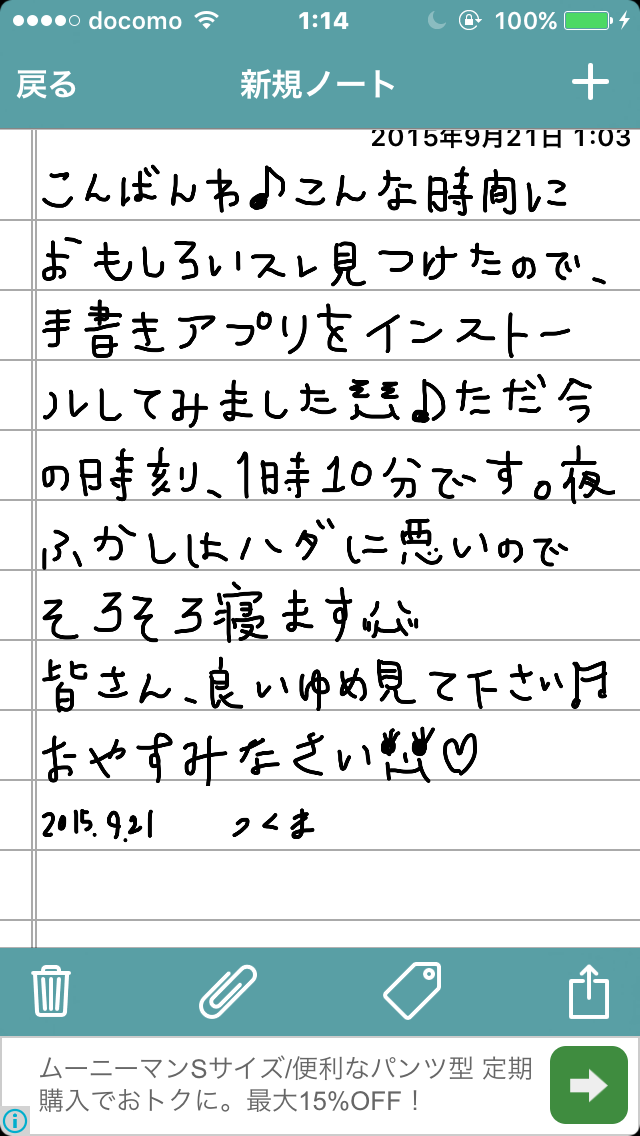 docomo 1:14 100%
戻る 新規ノート +
2015年9月21日 1:03
こんばんわ♪こんな時間に
おもしろいスレ見つけたので、
手書きアプリをインストー
ルしてみました♪ただ今
の時刻、1時10分です。夜
ふかしはハダに悪いので
そろそろ寝ます
皆さん、良いゆめ見て下さい♬
おやすみなさい♡
2015.9.21 つくま
ムーニーマンSサイズ/便利なパンツ型 定期
購入でおトクに。最大15%OFF！